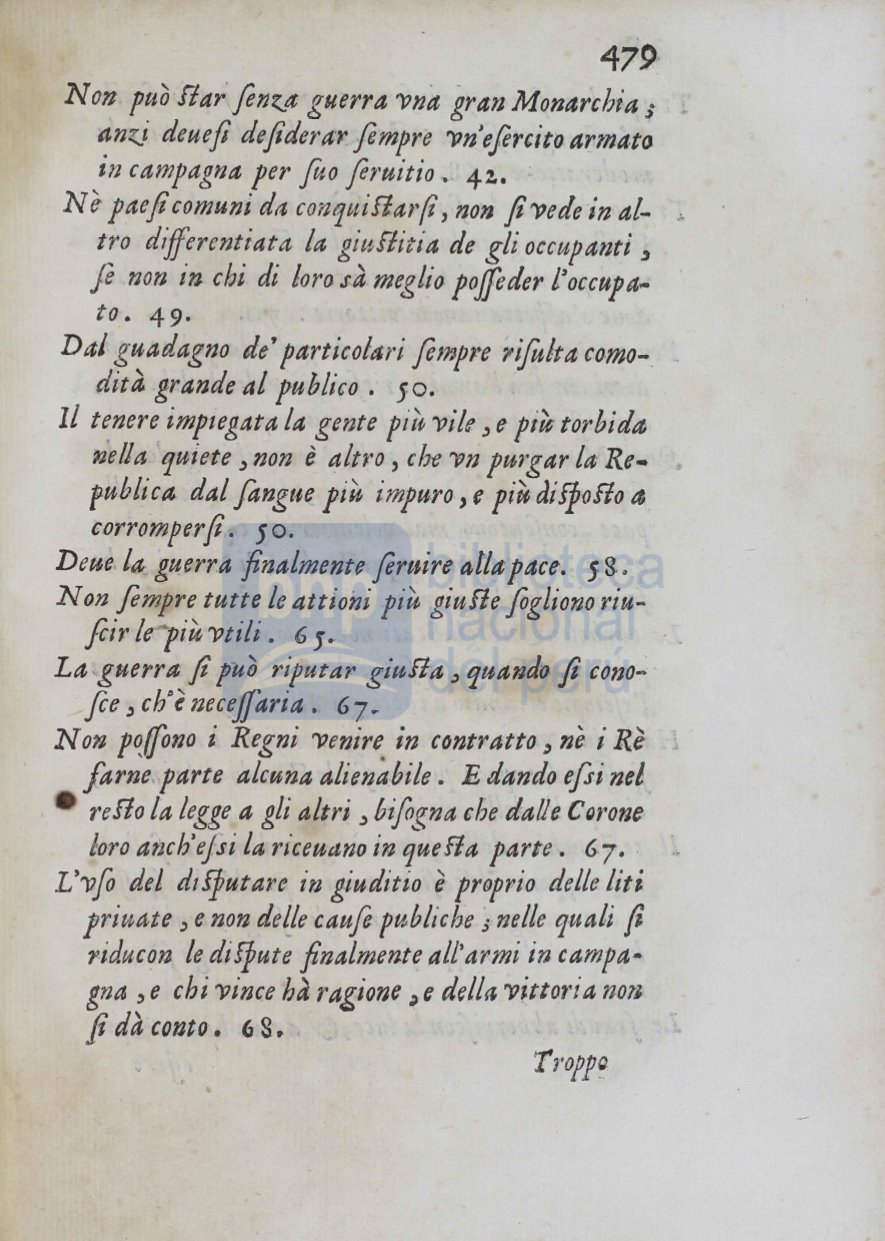 479
Non può ſtar ſenza guerra vna gran Monarchia ;
anzi deueſi deſiderar ſempre vn'eſercito armato
in campagna per ſuo ſeruitio . 42.
Nè paeſi comuni da conquiſtarſi , non ſi vede in al-
tro differentiata la giuſtitia de gli occupanti ,
ſe non in chi di loro sà meglio poſſeder l'occupa-
to . 49.
Dal guadagno de' particolari ſempre riſulta como-
dità grande al publico . 50.
Il tenere impiegata la gente più vile , e più torbida
nella quiete , non è altro , che vn purgar la Re-
publica dal ſangue più impuro , e più diſpoſto a
corromperſi . 50.
Deue la guerra finalmente ſeruire alla pace. 58.
Non ſempre tutte le attioni più giuſte ſogliono riu-
ſcir le più vtili . 65.
La guerra ſi può riputar giuſta , quando ſi cono-
ſce , ch'è neceſſaria . 67.
Non poſſono i Regni venire in contratto , nè i Rè
farne parte alcuna alienabile . E dando eſsi nel
reſto la legge a gli altri , biſogna che dalle Corone
loro anch'eſsi la riceuano in queſta parte . 67.
L'vſo del diſputare in giuditio è proprio delle liti
priuate , e non delle cauſe publiche ; nelle quali ſi
riducon le diſpute finalmente all'armi in campa-
gna , e chi vince hà ragione , e della vittoria non
ſi dà conto . 68.
Troppo
biblioteca
nacional
del perú